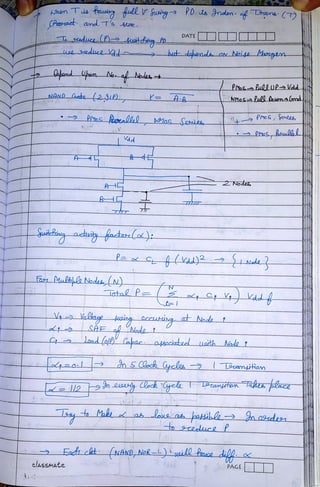 → When T is having full V swing → PD is Indep. of Trans. (T)
(Aspect and T's size.
To reduce (P) → switching
DATE
we reduce Vdd → but depends on Noise Margin
→ depend upon No. of Nodes →
PMOS → Pull UP → Vdd
NMOS → Pull Down → Gnd
NAND Gate (2 I/P), Y = A·B
• → PMOS Parallel, NMOS Series
+ → PMOS, Series
• → PMOS, Parallel
Vdd
A B
2 Nodes
A
B
Switching activity factor (α):
P = α CL f (Vdd)² → {1 Node}
For Multiple Nodes (N)
Total P = ( N Σ i=1 αi Ci Vi ) Vdd f
Vi → Voltage swing occuring at Node i
αi → SAF of Node i
Ci → Load (o/p) Capac. associated with Node i
αi = 0.1 → In 5 Clock Cycles → 1 Transition
α = 1/2 → In every Clock Cycle 1 Transition Taken place
Try to Make α as low as possible → In order
to reduce P
→ Each ckt (NAND, NOR - - ) will have diff α
classmate
PAGE